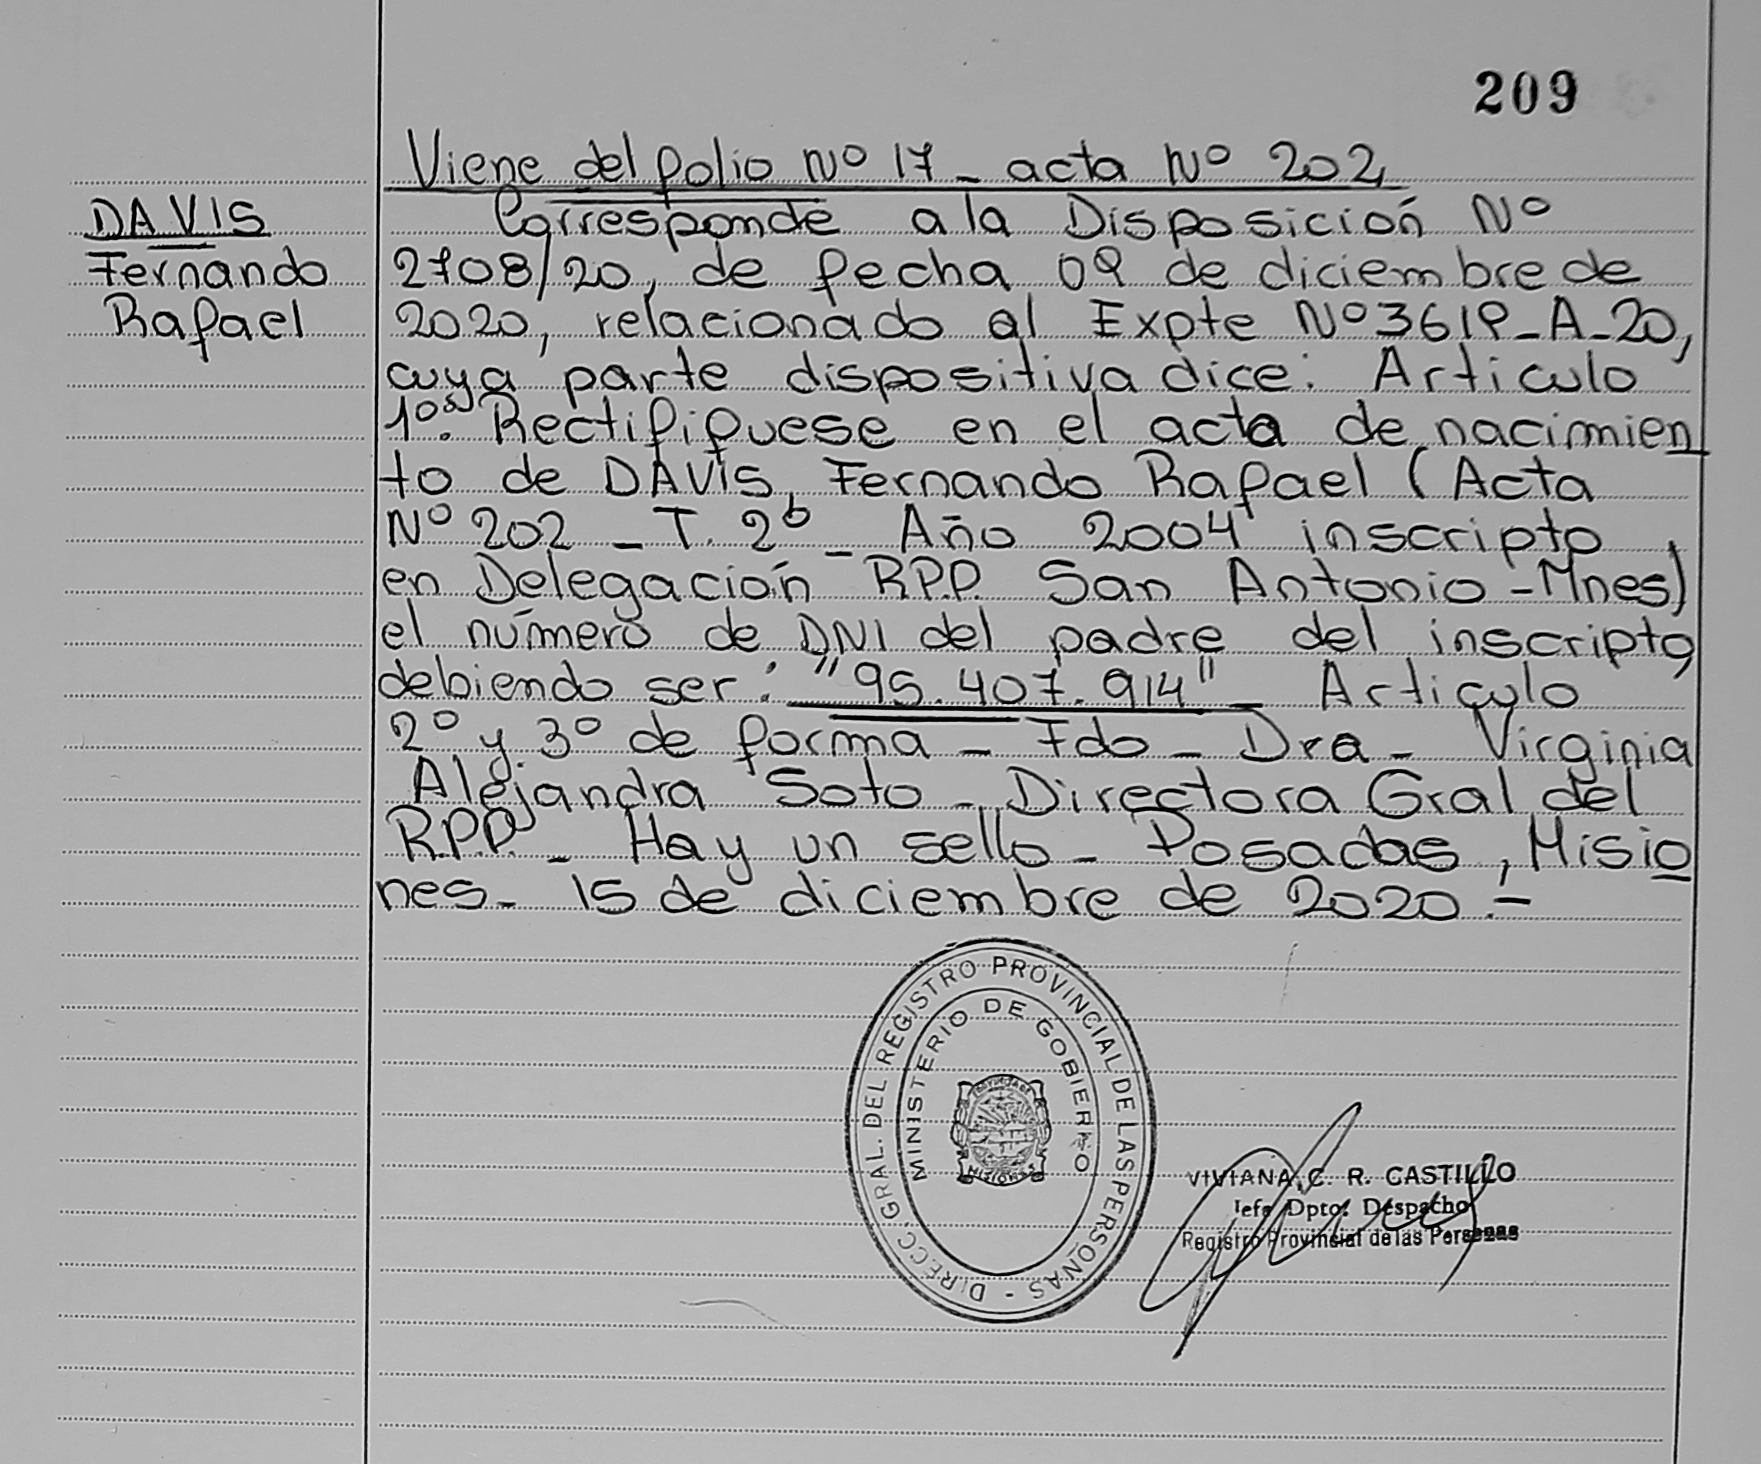 209
Viene del folio Nº 17 - acta Nº 202
DAVIS
Fernando
Rafael
Corresponde a la Disposición Nº
2708/20, de fecha 09 de diciembre de
2020, relacionado al Expte Nº 3619-A-20,
cuya parte dispositiva dice: Articulo
1º: Rectifiquese en el acta de nacimien
to de DAVIS, Fernando Rafael (Acta
Nº 202 - T. 2º - Año 2004 inscripto
en Delegación R.P.P. San Antonio - Mnes)
el número de DNI del padre del inscripto
debiendo ser: "95.407.914" - Articulo
2º y 3º de forma - Fdo - Dra - Virginia
Alejandra Soto - Directora Gral del
R.P.P. - Hay un sello - Posadas, Misio
nes - 15 de diciembre de 2020.-
DIRECC. GRAL. DEL REGISTRO PROVINCIAL DE LAS PERSONAS -
MINISTERIO DE GOBIERNO
MISIONES
VIVIANA C. R. CASTILLO
Jefe Dpto. Despacho
Registro Provincial de las Personas